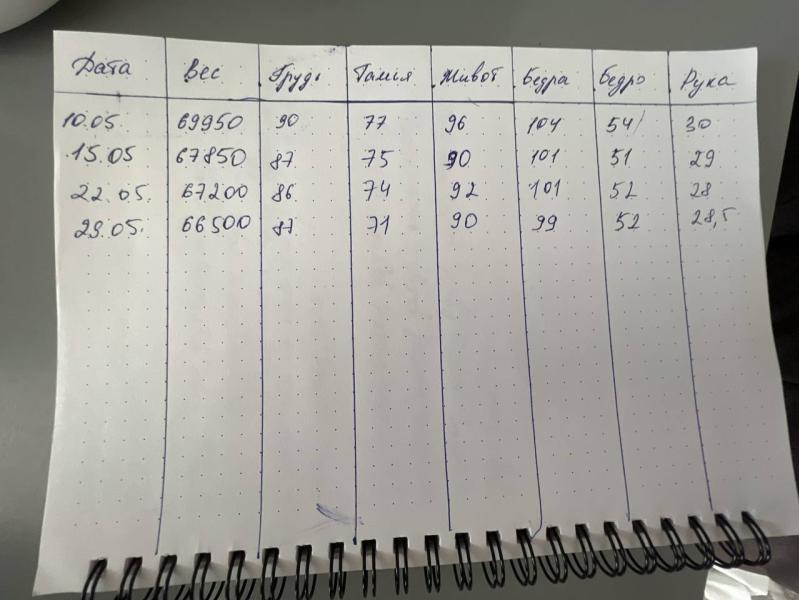 Дата Вес Грудь Талия Живот Бедра Бедро Рука
10.05 69950 90 77 96 104 54 30
15.05 67850 87 75 90 101 51 29
22.05. 67200 86 74 92 101 52 28
29.05. 66500 87 71 90 99 52 28,5